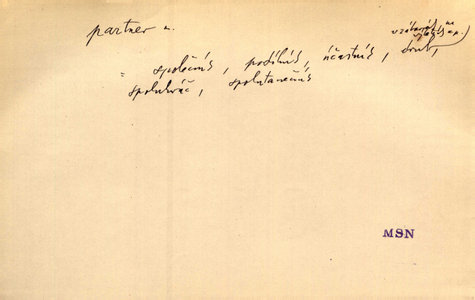 partner m.
= společník, podílník, účastník, druh,
spoluhráč, spolutanečník
MSN